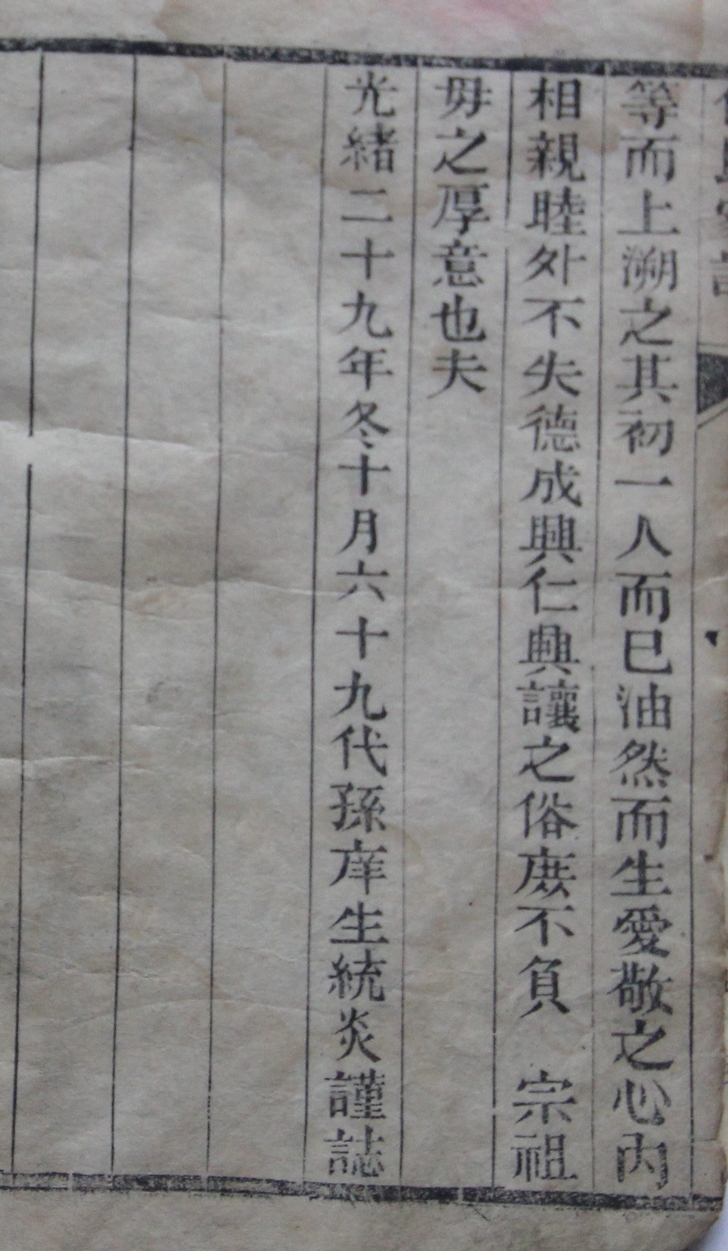 等而上溯之其初一人而已油然而生愛敬之心內
相親睦外不失德成興仁興讓之俗庻不負　宗祖
毋之厚意也夫
光緒二十九年冬十月六十九代孫庠生統炎謹誌